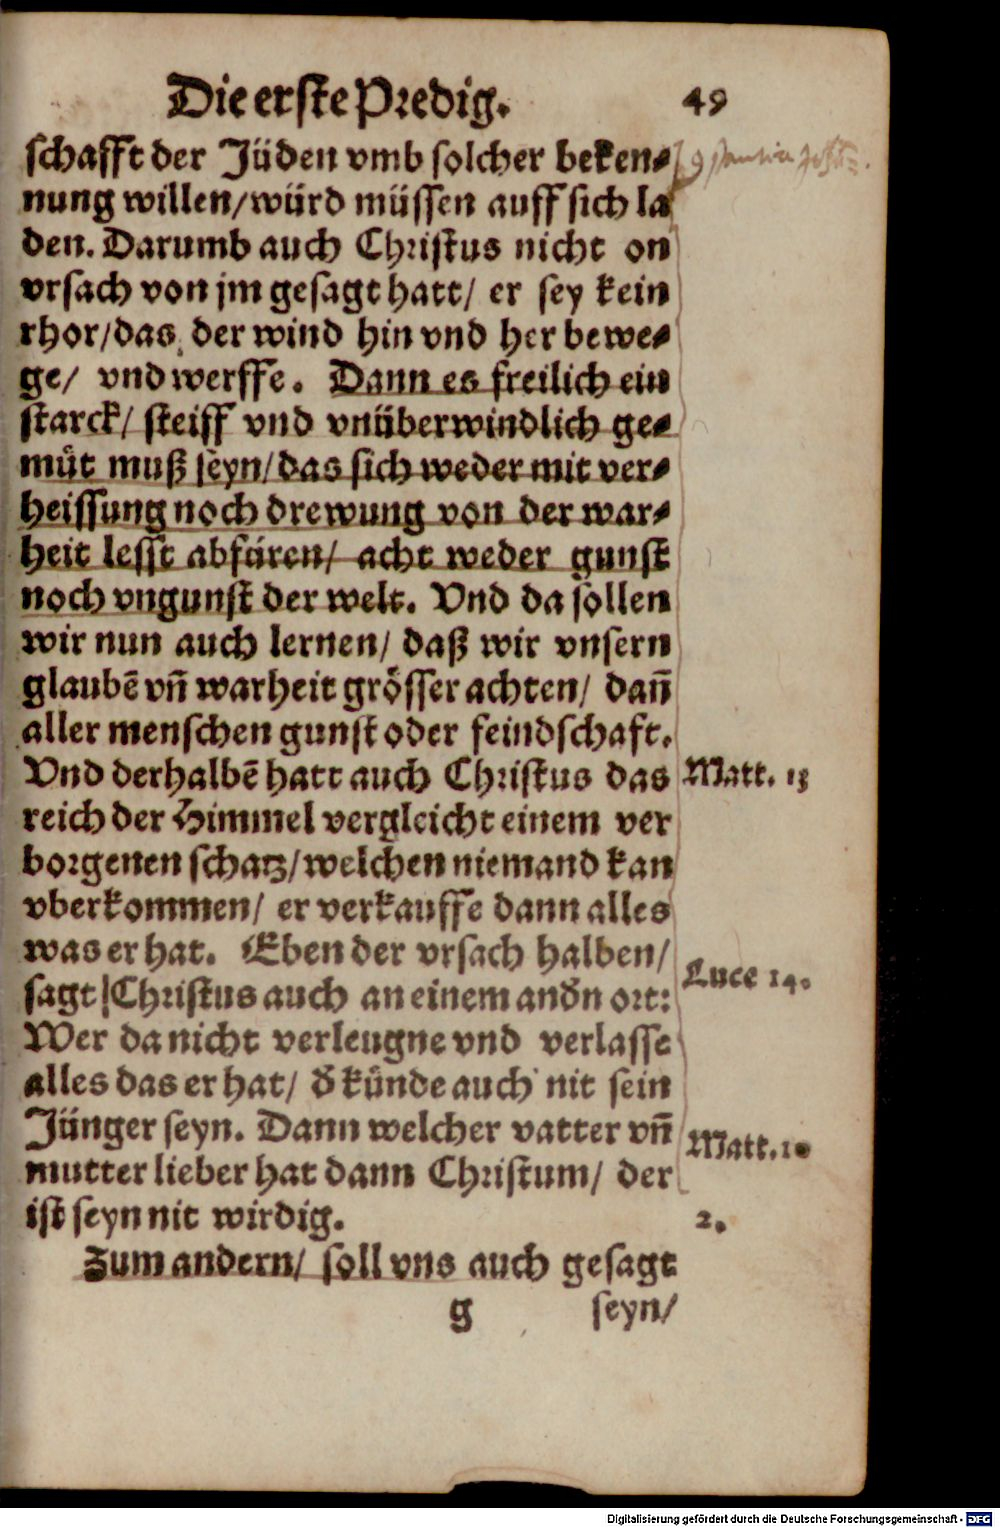 Die erste Predig. 49
schafft der Jüden vmb solcher beken⸗
nung willen/würd müssen auff sich la
den. Darumb auch Christus nicht on
vrsach von jm gesagt hatt/ er sey kein
rhor/das der wind hin vnd her bewe⸗
ge/ vnd werffe. Dann es freilich ein
starck/ steiff vnd vnüberwindlich ge⸗
müt muß seyn/das sich weder mit ver⸗
heissung noch drewung von der war⸗
heit lesst abfüren/ acht weder gunst
noch vngunst der welt. Vnd da sollen
wir nun auch lernen/ daß wir vnsern
glaubē vñ warheit grösser achten/ dañ
aller menschen gunst oder feindschaft.
Vnd derhalbē hatt auch Christus das
Matt. 13
reich der Himmel vergleicht einem ver
borgenen schatz/welchen niemand kan
vberkommen/ er verkauffe dann alles
was er hat. Eben der vrsach halben/
Luce 14.
sagt Christus auch an einem andn ort:
Wer da nicht verleugne vnd verlasse
alles das er hat/ d künde auch nit sein
Jünger seyn. Dann welcher vatter vñ
Matt.10
mutter lieber hat dann Christum/ der
ist seyn nit wirdig.
2.
Zum andern/ soll vns auch gesagt
g seyn/
Digitalisierung gefördert durch die Deutsche Forschungsgemeinschaft - DFG